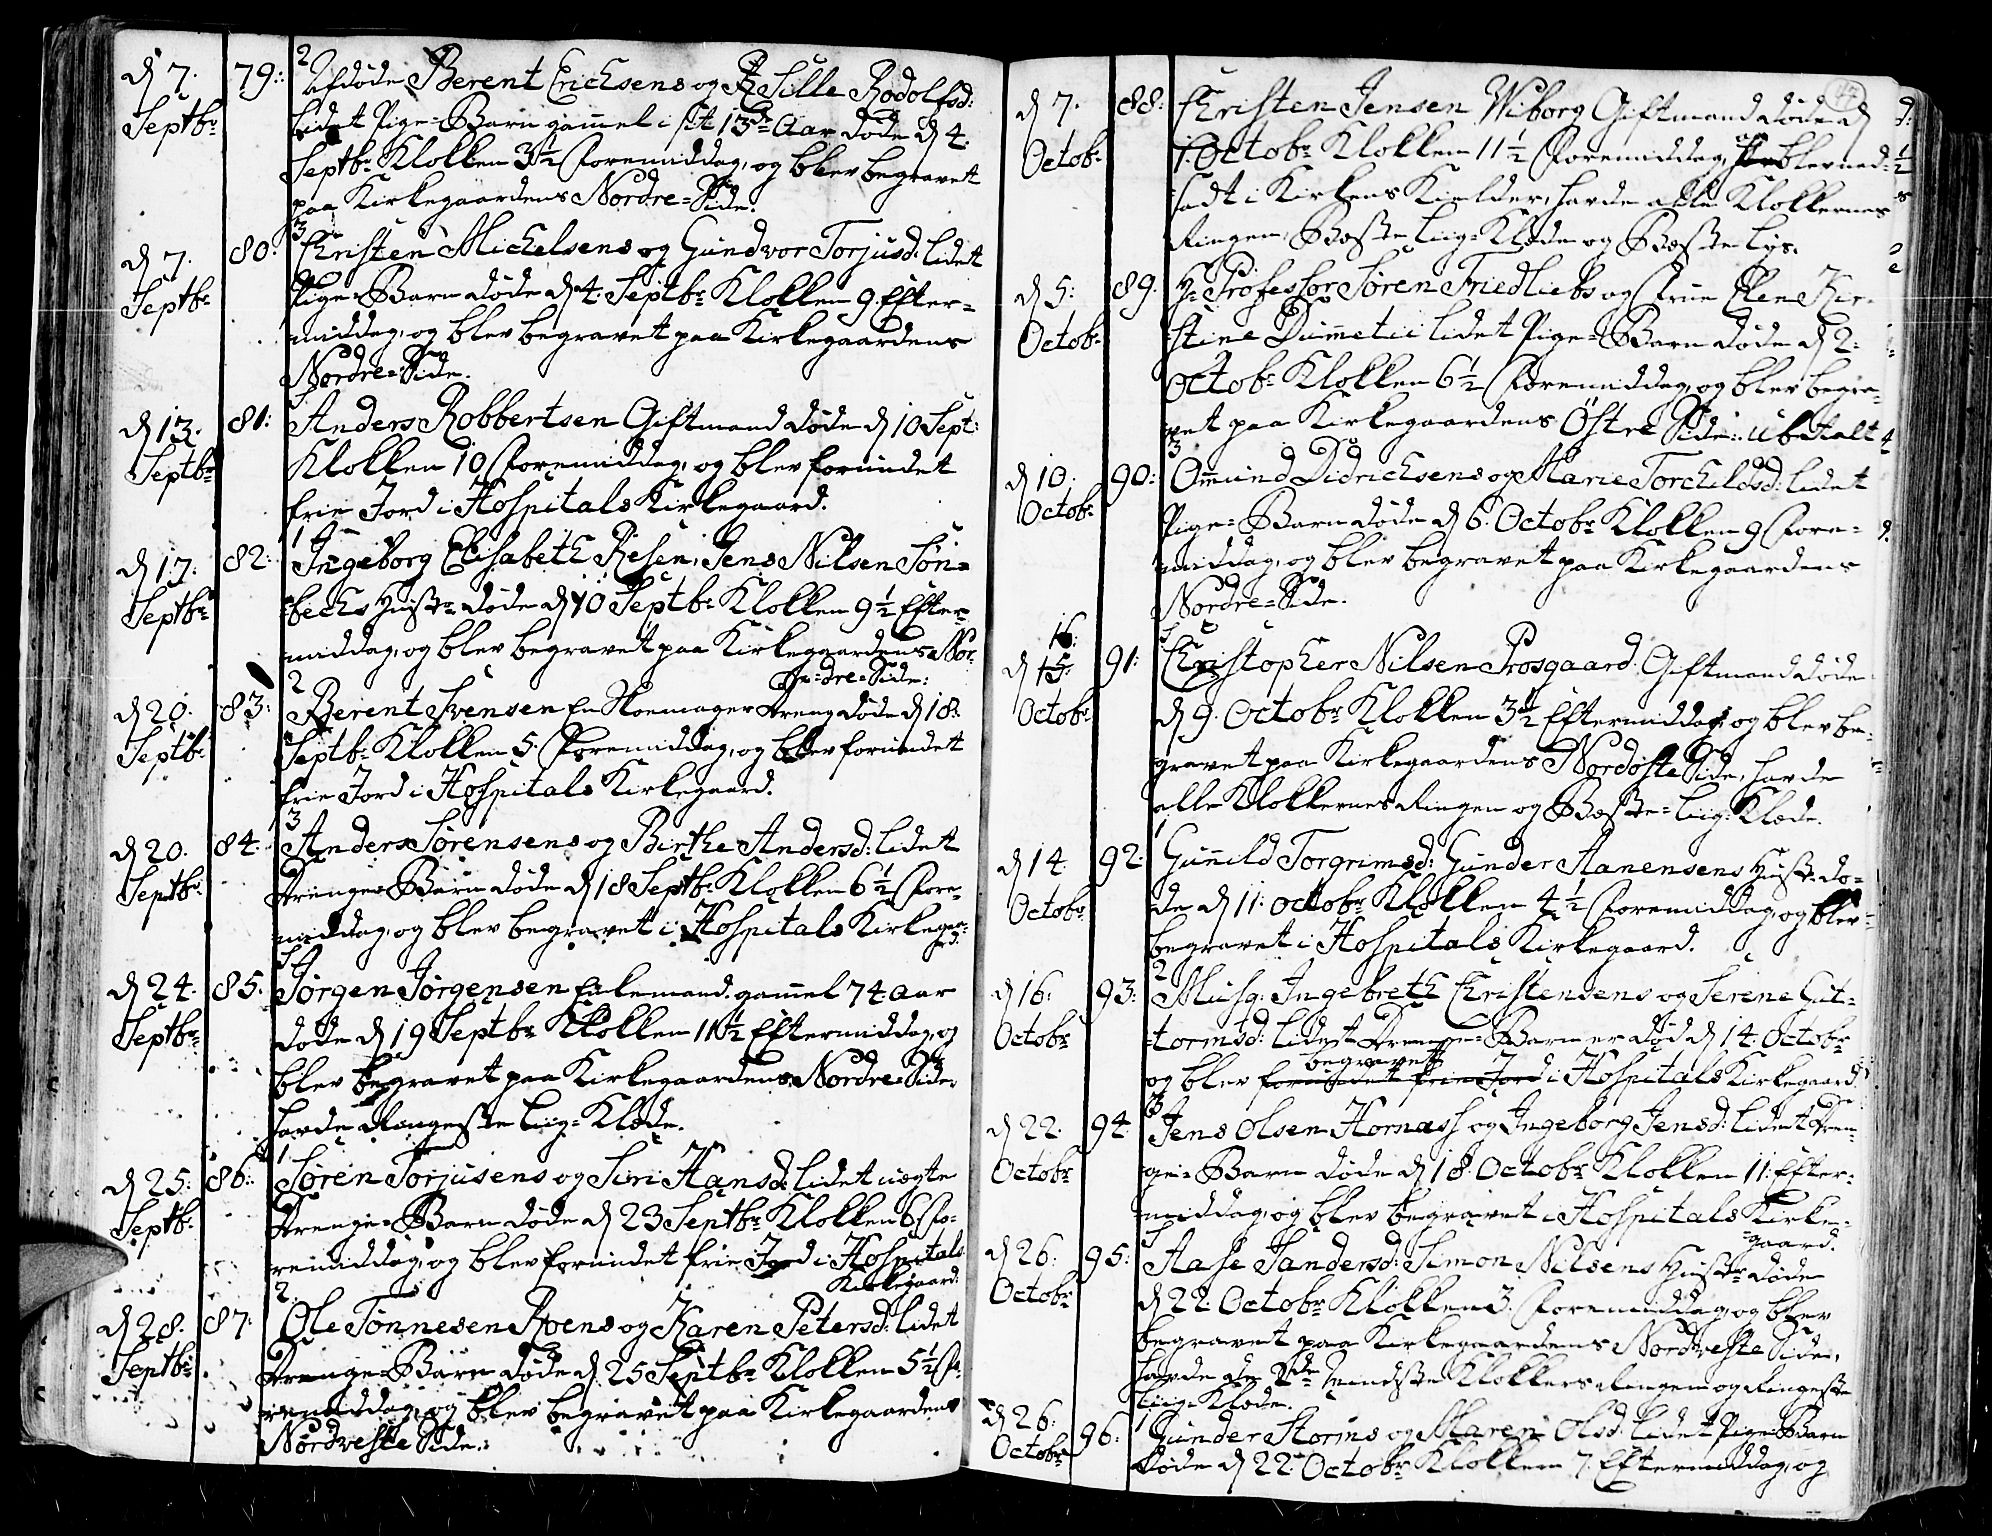 d 7. Septbr 79: 2 Afdøde Berent Erichsens og Sille Rodolfsd:
lidet Pige-Barn gammel i sit 13de Aar døde d 4.
Septbr Klokken 3½ Formiddag, og blev begravet
paa Kirkegaardens Nordre-Side.
d 7. Septbr 80: 3 Christen Michelsens og Gundvor Torjusd: lidet
Pige-Barn døde d 4. Septbr Klokken 9. Efter-
middag, og blev begravet paa Kirkegaardens
Nordre-Side.
d 13. Septbr 81: Anders Robbertsen Giftmand døde d 10 Sept:
Klokken 10 Formiddag, og blev forundet
frie Jord i Hospitals Kirkegaard.
d 17. Septbr 82: 1 Ingeborg Elisabeth Resen, Jens Nilsen Søn-
bechs Hustr døde d 10 Septbr Klokken 9½ Efter-
middag, og blev begravet paa Kirkegaardens Nor-
dre-Side:
d 20. Septbr 83: 2 Berent Svensen En Skoemager Dreng døde d 18.
Septbr Klokken 5. Formiddag, og blev forundet
frie Jord i Hospitals Kirkegaard.
d 20. Septbr 84. 3 Anders Sørensens og Birthe Andersd: lidet
Drenge-Barn døde d 18 Septbr Klokken 6½ Fore-
middag, og blev begravet i Hospitals Kirkegaa-
rd.
d 24. Septbr 85: Jørgen Jørgensen Enkemand. gammel 74 Aar
døde d 19 Septbr Klokken 11½ Eftermiddag, og
blev begravet paa Kirkegaardens Nordre-Side.
havde Ringeste Liig-Klæde.
d 25: Septbr 86: 1 Søren Torjusens og Siri Hansd: lidet uægte
Drenge-Barn døde d 23 Septbr Klokken 6 Fo-
remiddag, og blev forundet frie Jord i Hospitals
Kirkegaard:
d 28. Septbr 87: 2. Ole Tønnesen Roens og Karen Petersd: lidet
Drenge-Barn døde d. 25 Septbr Klokken 5½ Fo-
remiddag, og blev begravet paa Kirkegaardens
Nordveste Side.:
d 7. Octobr 88: Christen Jensen Wiborg Giftmand døde d
1. Octobr Klokken 11½ Foremiddag, og blev ned-
sadt i Kirkens Kielder, havde alle Klokkernes
Ringen, Bæste Liig-Klæde og Bæste Lys.
d 5: Octobr 89. Hr Professor Søren Friedliebs og Frue Elen Kir-
stine Dumetii lidet Pige-Barn døde d 2.
Octobr Klokken 6½ Foremiddag, og blev begra-
vet paa Kirkegaardens Østre Side: ubetalt
d 10. Octobr 90: 3 Omund Didrichsens og Marie Torchildsd: lidet
Pige-Barn døde d 6. Octobr Klokken 9 Fore-
middag, og blev begravet paa Kirkegaardens
Nordre-Side.
16: d 15. Octobr 91: Christopher Nilsen Prosgaard. Giftmand døde
d 9. Octobr Klokken 3½ Eftermiddag, og blev be-
gravet paa Kirkegaardens Nordøste Side, havde
alle Klokkernes Ringen og Bæste-Liig-Klæde.
d 14 Octobr 92: 1 Gunnild Torgrimsd: Gunder Aanensens Hustr. dø-
de d 11. Octobr Klokken 4½ Foremiddag, og blev
begravet i Hospitals Kirkegaard.
d 16: Octobr 93: 2 Musq: Ingebreth Christensens og Serene Gut-
tormsd: lidet Drenge-Barn er død d 14. Octobr
begravet
og blev forundet frie Jord i Hospitals Kirkegaard.
d 22. Octobr 94. 3 Jens Olsen Hornæss og Ingeborg Jensd: lidet Dren-
ge-Barn døde d 18. Octobr Klokken 11. Efter-
middag, og blev begravet i Hospitals Kirke-
gaard.
d 26. Octobr 95: Aase Sandersd: Simon Nilsens Hustr døde
d 22. Octobr Klokken 3. Foremiddag, og blev
begravet paa Kirkegaardens Nordveste Side,
havde de 2de mindste Klokkers Ringen og Ringeste
Liig-Klæde.
d 26. Octobr 96: 1 Gunder Storms og Maren Olsd: lidet Pige-Barn
døde d 22. Octobr Klokken 7. Eftermiddag, og